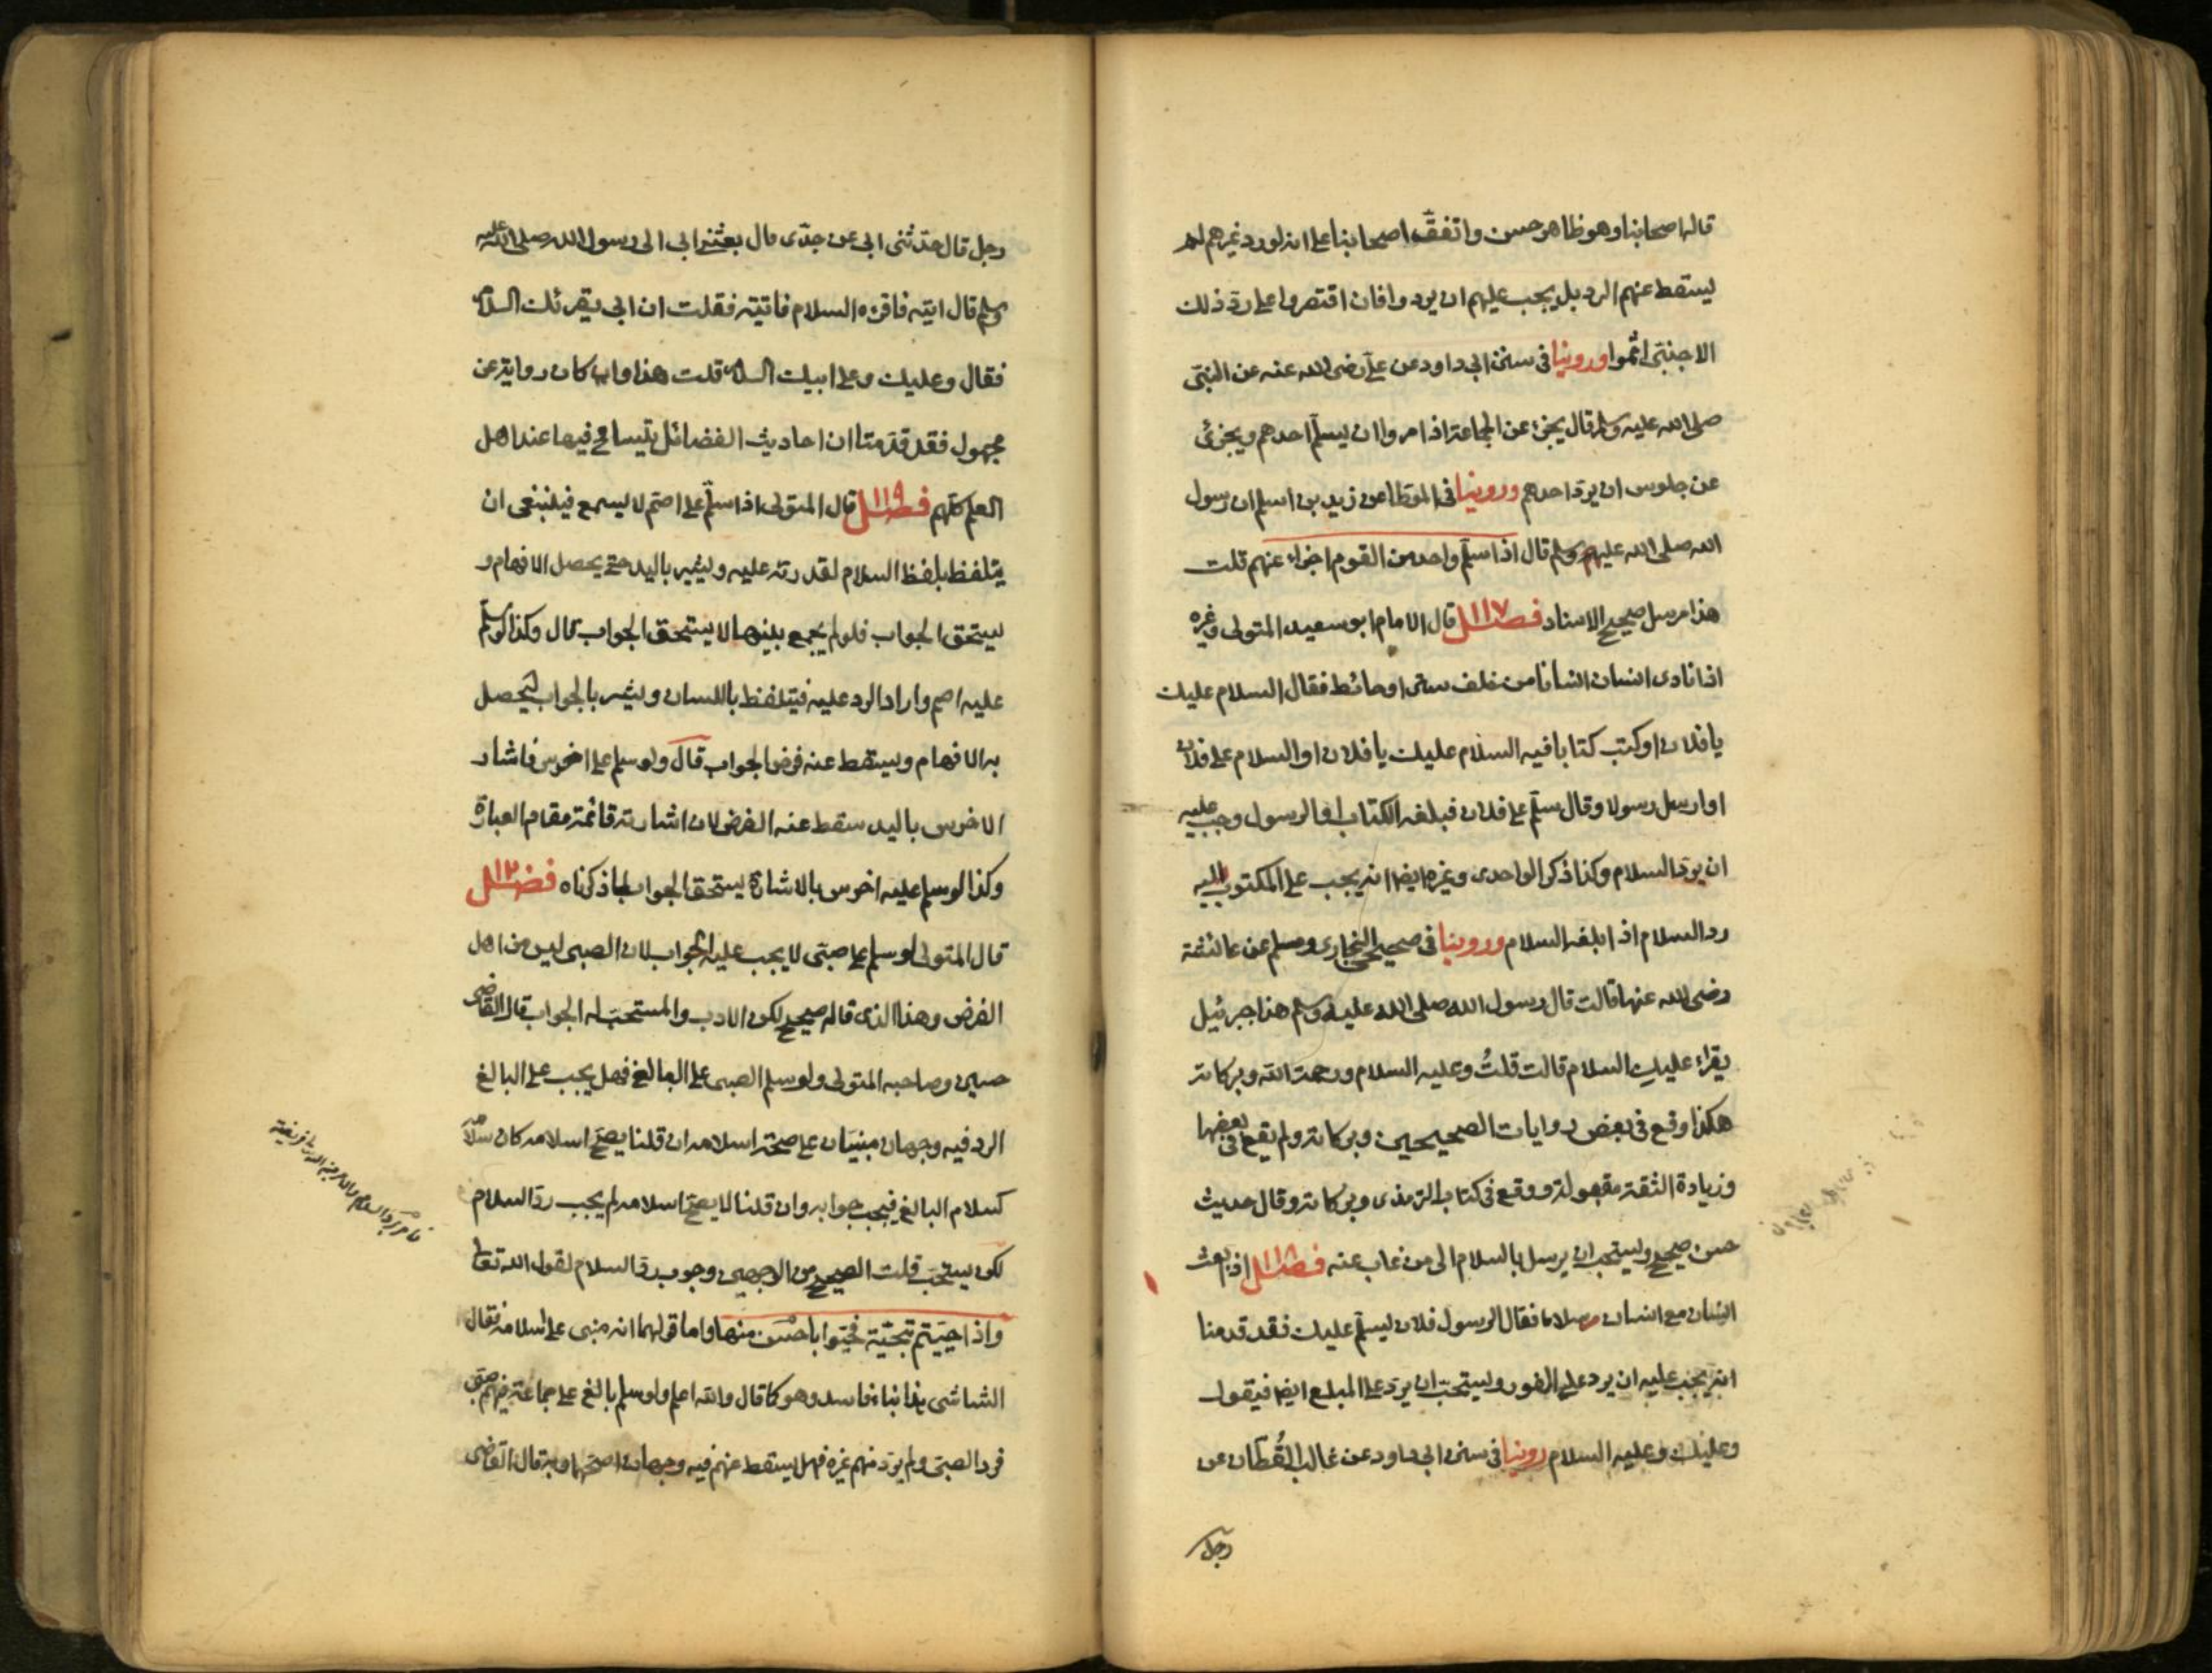 قاله اصحابنا وهو ظاهر حسن واتفق اصحابنا على انه لو رد غيرهم لم
يسقط عنهم الرد بل يجب عليهم ان يردوا فان اقتصروا على رد ذلك
الاجنبي اثموا وروينا في سنن ابي داود عن علي رضي الله عنه عن النبي
صلى الله عليه وسلم قال يجزئ عن الجماعة اذا مروا ان يسلم احدهم ويجزئ
عن جلوس ان يرد احدهم وروينا في الموطا عن زيد بن اسلم ان رسول
الله صلى الله عليه وسلم قال اذا سلم واحد من القوم اجزاء عنهم قلت
هذا مرسل صحيح الاسناد فصل ١١٧ قال الامام ابو سعيد المتولى وغيره
اذا نادى انسان انسانا من خلف ستر او حائط فقال السلام عليك
يا فلان او كتب كتابا فيه السلام عليك يا فلان او السلام على فلان
او ارسل رسولا وقال سلم على فلان فبلغه الكتاب او الرسول وجب عليه
ان يرد السلام وكذا ذكر الواحدى وغيره ايضا انه يجب على المكتوب اليه
رد السلام اذا بلغه السلام وروينا في صحيحي البخارى ومسلم عن عائشة
رضي الله عنها قالت قال رسول الله صلى الله عليه وسلم هذا جبرئيل
يقراء عليك السلام قالت قلتُ وعليه السلام ورحمة الله وبركاته
هكذا وقع في بعض روايات الصحيحين وبركاته ولم يقع في بعضها
وزيادة الثقة مقبولة ووقع في كتاب الترمذى وبركاته وقال حديث
حسن صحيح ويستحب ان يرسل بالسلام الى من غاب عنه فصل ١١٨ اذا بعث
انسان مع انسان سلاما فقال الرسول فلان يسلم عليك فقد قدمنا
انه يجب عليه ان يرد على الفور ويستحب ان يرد على المبلغ ايضا فيقول
وعليك وعليه السلام روينا في سنن ابي داود عن غالب القُطّان عن
رجل
رجل قال حدثنى ابي عن جدى قال بعثنى ابي الى رسول الله صلى الله عليه
وسلم قال ايته فاقرءه السلام فاتيته فقلت ان ابي يقرئك السلام
فقال وعليك وعلى ابيك السلام قلت هذا وان كان رواية عن
مجهول فقد قدمنا ان احاديث الفضائل يتسامح فيها عند اهل
العلم كلهم فصل ١١٩ قال المتولى اذا سلم على اصم لا يسمع فينبغى ان
يتلفظ بلفظ السلام لقدرته عليه ويشير باليد حتى يحصل الافهام و
يستحق الجواب فلو لم يجمع بينهما لا يستحق الجواب قال وكذا لو سلم
عليه اصم واراد الرد عليه فيتلفظ باللسان ويشير بالجواب ليحصل
به الافهام ويسقط عنه فرض الجواب قال ولو سلم على اخرس فاشار
الاخرس باليد سقط عنه الفرض لان اشارته قائمة مقام العبارة
وكذا لو سلم عليه اخرس بالاشارة يستحق الجواب لما ذكرناه فصل ١٢٠
قال المتولى لو سلم على صبي لا يجب عليه الجواب لان الصبي ليس من اهل
الفرض وهذا الذى قاله صحيح لكن الادب والمستحب له الجواب قال القاضى
حسين وصاحبه المتولى ولو سلم الصبى على البالغ فهل يجب على البالغ
الرد فيه وجهان مبنيان على صحة اسلامه ان قلنا يصح اسلامه كان سلامه
كسلام البالغ فيجب جوابه وان قلنا لا يصح اسلامه لم يجب رد السلام
لكن يستحب قلت الصحيح من الوجهين وجوب رد السلام لقول الله تعالى
واذا حييتم بتحية فحيوا باحسن منها واما قولهما انه مبنى على اسلامه فقال
الشاشى هذا بناء فاسد وهو كما قال والله اعلم ولو سلم بالغ على جماعة فيهم صبي
فرد الصبى ولم يرد منهم غيره فهل يسقط عنهم فيه وجهان اصحهما وبه قال القاضى